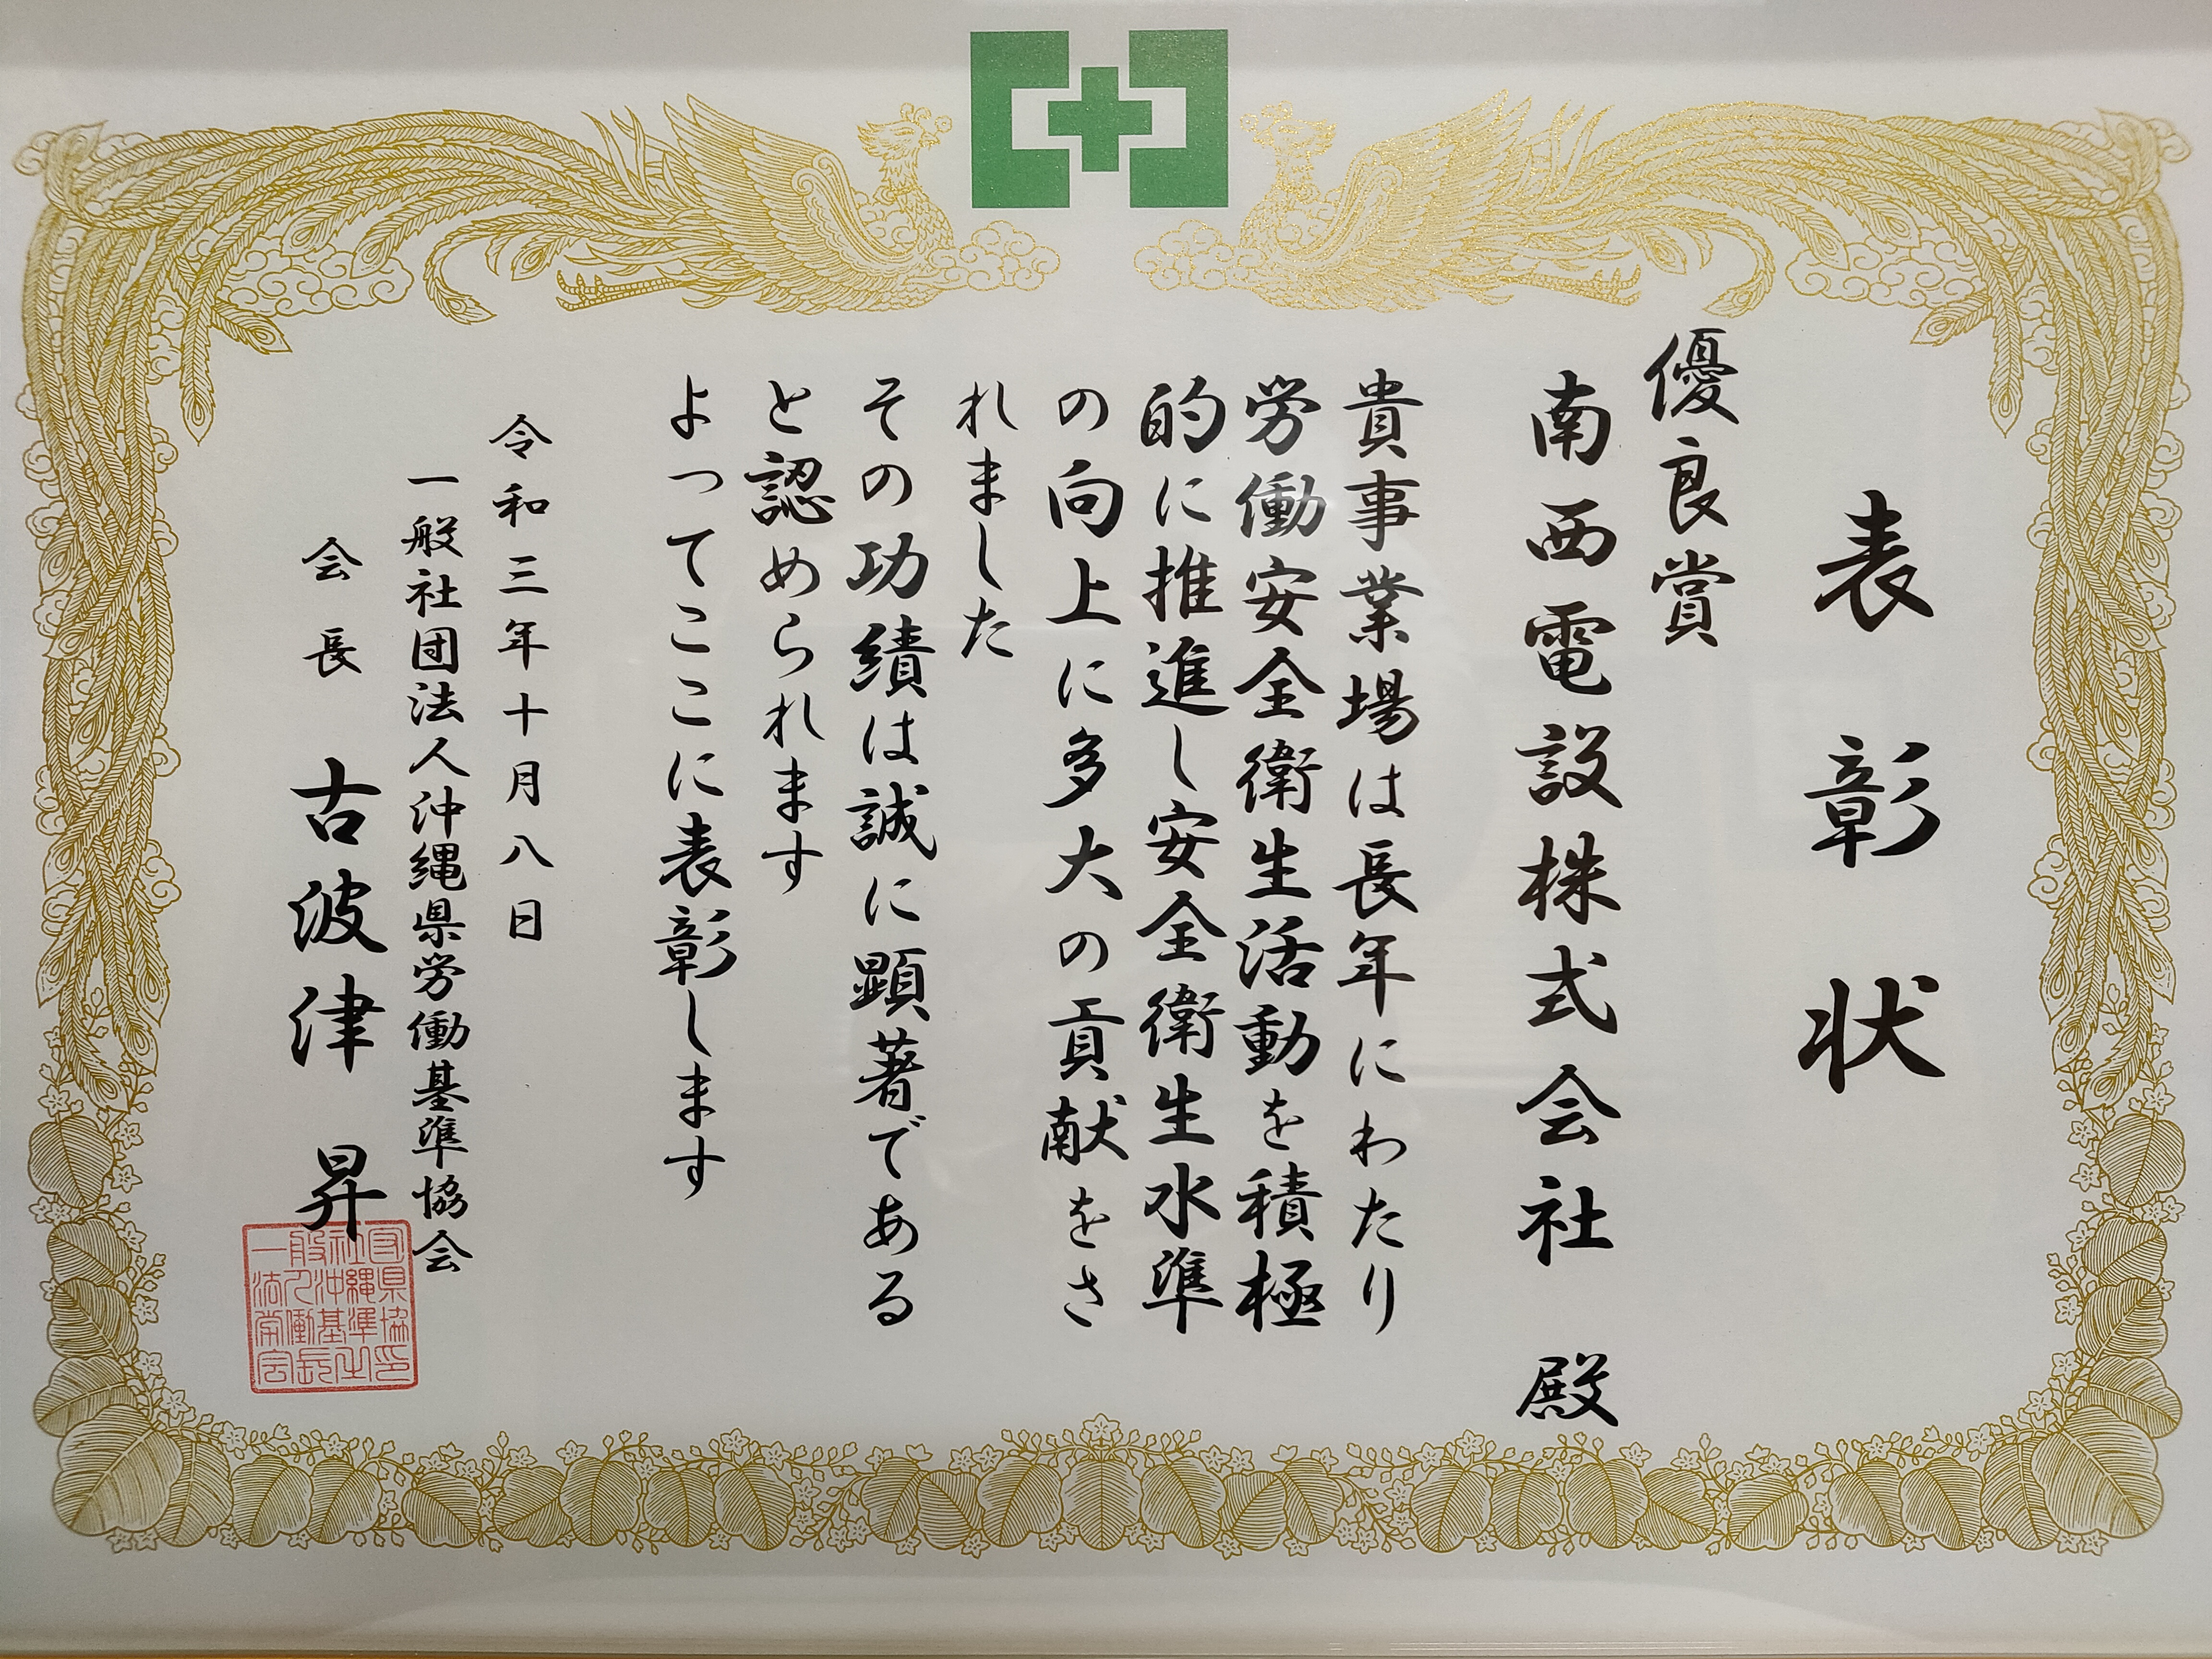 表彰状
優良賞
南西電設株式会社 殿
貴事業場は長年にわたり
労働安全衛生活動を積極
的に推進し安全衛生水準
の向上に多大の貢献をさ
れました
その功績は誠に顕著である
と認められます
よってここに表彰します
令和三年十月八日
一般社団法人沖縄県労働基準協会
会長 古波津 昇